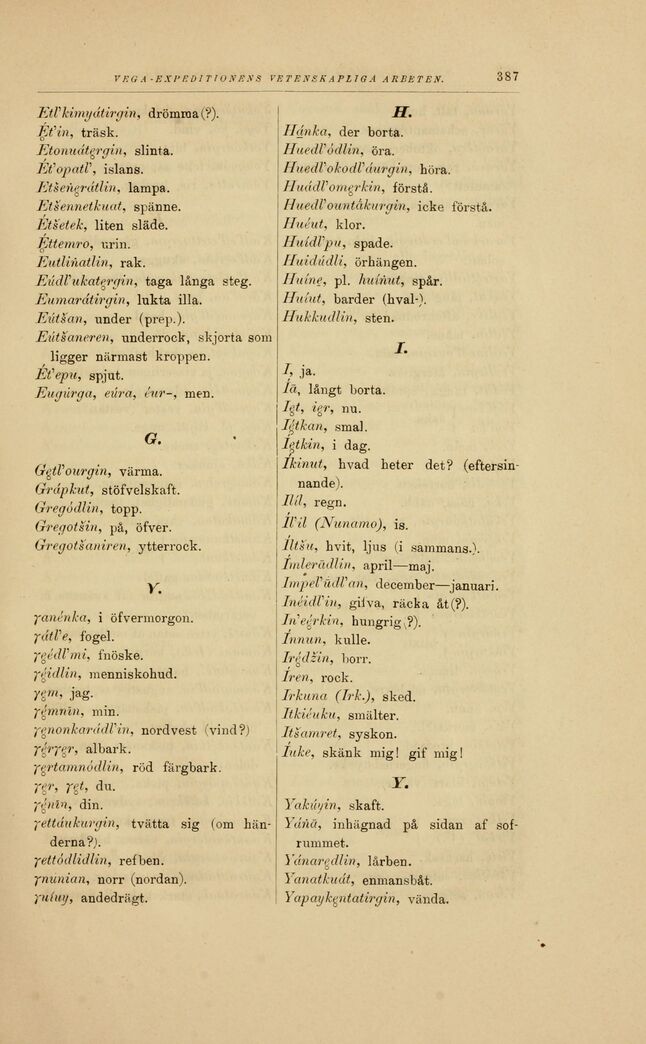 VEGA-EXPEDITIONENS VETENSKAPLIGA ARBETEN. 387
Etl'kimyátirgin, drömma(?).
Ęt'in, träsk.
Etonuátgrgin, slinta.
Ét'opatl', islans.
Etšeńgrátlin, lampa.
Etšennetkuat, spänne.
Étšetek, liten släde.
Ęttemro, urin.
Eutlińatlin, rak.
Eúdl'ukatęrgin, taga långa steg.
Eumarátirgin, lukta illa.
Eútšan, under (prep.).
Eútšaneren, underrock, skjorta som
ligger närmast kroppen.
Ét'epu, spjut.
Eugúrga, eúra, éur-, men.
G.
Gętl'ourgin, värma.
Grápkut, stöfvelskaft.
Gregódlin, topp.
Gregotšin, på, öfver.
Gregotšaniren, ytterrock.
γ.
γanénka, i öfvermorgon.
γátl'e, fogel.
γęédl'mi, fnöske.
γęidlin, menniskohud.
γęm, jag.
γęmnin, min.
γęnonkarádl'in, nordvest (vind?)
γęrγęr, albark.
γęrtamnódlin, röd färgbark.
γęr, γęt, du.
γęnin, din.
γettáukurgin, tvätta sig (om hän-
derna?).
γettódlidlin, refben.
γnunian, norr (nordan).
γuíuy, andedrägt.
H.
Hánka, der borta.
Huedl'ódlin, öra.
Huedl'okodl'áurgin, höra.
Huádl'omęrkin, förstå.
Huedl'ountákurgin, icke förstå.
Huéut, klor.
Huídl'pu, spade.
Huidúdli, örhängen.
Huínę, pl. huíńut, spår.
Huíut, barder (hval-).
Hukkudlin, sten.
I.
I, ja.
Íā, långt borta.
Igt, igr, nu.
Igtkan, smal.
Igtkin, i dag.
Íkinut, hvad heter det? (eftersin-
nande).
Ilíl, regn.
Íl'il (Nunamo), is.
Íltšu, hvit, ljus (i sammans.).
Ímlerādlin, april—maj.
Impel'údl'an, december—januari.
Inéidl'in, gifva, räcka åt(?).
In'eęrkin, hungrig(?).
Ínnun, kulle.
Irędžin, borr.
Íren, rock.
Irkuna (Irk.), sked.
Itkiéuku, smälter.
Itšamret, syskon.
Íuke, skänk mig! gif mig!
Y.
Yakúyin, skaft.
Yáńā, inhägnad på sidan af sof-
rummet.
Yánargdlin, lårben.
Yanatkuát, enmansbåt.
Yapaykęntatirgin, vända.